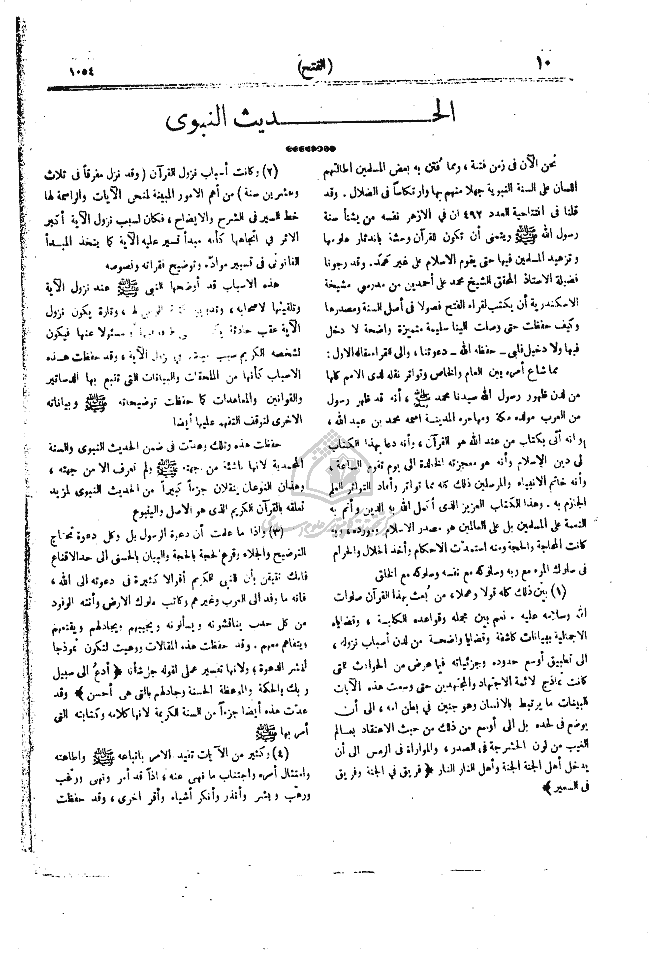 ١٠
(الفتح)
١٠٥٤
الحـــديث النبوى
نحن الآن فى زمن فتنة ، ومما فُتن به بعض المسلمين اطالتهم
اللسان على السنة النبوية جهلا منهم بها وارتكاسا فى الضلال . وقد
قلنا فى افتتاحية العدد ٤٩٢ ان فى الازهر نفسه من يشنأ سنة
رسول الله ﷺ ويتمنى أن تكون للقرآن وحشة باندثار علومها
وتزهيد المسلمين فيها حتى يقوم الاسلام على غير محمد . وقد رجونا
فضيلة الاستاذ المحقق الشيخ محمد على أحمدين من مدرسي مشيخة
الاسكندرية أن يكتب لقراء الفتح فصولا فى أصل السنة ومصدرها
وكيف حفظت حتى وصلت الينا سليمة متميزة واضحة لا دخل
فيها ولا دخيل فلبى ـ حفظه الله ـ دعوتنا ، والى القراء مقاله الاول :
مما شاع أمره بين العام والخاص وتواتر نقله لدى الامم كلها
من لدن ظهور رسول الله سيدنا محمد ﷺ ، أنه قد ظهر رسول
من العرب مولده مكة ومهاجره المدينة اسمه محمد بن عبد الله ،
وانه أتى بكتاب من عند الله هو القرآن ، وأنه دعا بهذا الكتاب
الى دين الاسلام وأنه هو معجزته الخالدة الى يوم تقوم الساعة ،
وأنه خاتم الانبياء والمرسلين ذلك كله مما تواتر وأفاد التواتر العلم
الجازم به . وهذا الكتاب العزيز الذى أكمل الله به الدين وأتم به
النعمة على المسلمين بل على العالمين هو مصدر الاسلام ومورده ، به
كانت المحاجة والحجة ومنه استمدت الاحكام وأخذ الحلال والحرام
فى سلوك المرء مع ربه وسلوكه مع نفسه وسلوكه مع الخلق
(١) بين ذلك كله قولا وعملا ، من بُعث بهذا القرآن صلوات
الله وسلامه عليه . نعم بين مجمله وقواعده الكلية ، وقضاياه
الاجمالية ببيانات كاشفة وقضايا واضحة من لدن أسباب نزوله ،
الى تطبيق أوسع حدوده وجزئياته فيما عرض من الحوادث حتى
كانت نماذج لائمة الاجتهاد والمجتهدين حتى وسعت هذه الآيات
البينات ما يرتبط بالانسان وهو جنين في بطن امه ، الى أن
يوضع فى لحده بل الى أوسع من ذلك من حيث الاعتقاد بعالم
الغيب من لون الحشرجة فى الصدر ، والمواراة فى الرمس الى أن
يدخل أهل الجنة الجنة وأهل النار النار ﴿ فريق في الجنة وفريق
فى السعير ﴾
(٢) وكانت أسباب نزول القرآن ( وقد نزل مفرقاً فى ثلاث
وعشرين سنة ) من أهم الامور المبينة لمنحى الآيات والراسمة لها
خط السير فى الشرح والايضاح ، فكان لسبب نزول الآية أكبر
الاثر فى اتجاهها كأنه مبدأ تسير عليه الآية كما يتخذ المبدأ
القانونى فى تسيير موادّه وتوضيح فقراته ونصوصه
هذه الاسباب قد أوضحها النبي ﷺ عند نزول الآية
وتلقينها لاصحابه ، وتارة يكون نزول
الآية عقب حادثة ومسئولا عنها فيكون
لشخصه الكريم سبب نزول الآية ، وقد حفظت هذه
الاسباب كأنها من الملحقات والبيانات التى تتبع بها الدساتير
والقوانين والمعاهدات كما حفظت توضيحاته ﷺ وبياناته
الاخرى لتوقف التفهم عليها أيضا
حفظت هذه وتلك وعدّت فى ضمن الحديث النبوى والسنة
المحمدية لانها ناشئة من جهته ﷺ ولم تعرف الا من جهته ،
وهذان النوعان ينقلان جزءاً كبيراً من الحديث النبوى لمزيد
تعلقه بالقرآن الكريم الذى هو الاصل والينبوع
(٣) واذا ما علمت أن دعوة الرسول بل وكل دعوة تحتاج
التوضيح والجلاء وقرع الحجة بالحجة والبيان بالحسنى الى حد الاقناع
فانك تتيقن بأن للنبى الكريم أقوالا كثيرة فى دعوته الى الله ،
فانه ما وفد الى العرب وغيرهم وكاتب ملوك الارض وأتته الوفود
من كل حدب يناقشونه ويسألونه ويجيبهم ويجادلهم ويقنعهم
ويتفاهم معهم . وقد حفظت هذه المقالات ووعيت لتكون نموذجا
لنشر الدعوة ، ولانها تفسير عملى لقوله جل شأنه ﴿ أدعُ الى سبيل
ربك بالحكمة والموعظة الحسنة وجادلهم بالتى هى أحسن ﴾ وقد
عدّت هذه أيضا جزءاً من السنة الكريمة لانها كلامه وكتابته التى
أمر بها ﷺ
(٤) وكثير من الآيات تفيد الامر باتباعه ﷺ واطاعته
وامتثال أمره واجتناب ما نهى عنه ؛ اذاً قد أمر ونهى ورغّب
ورهّب و بشر وأنذر وأنكر أشياء وأقر اخرى ، وقد حفظت